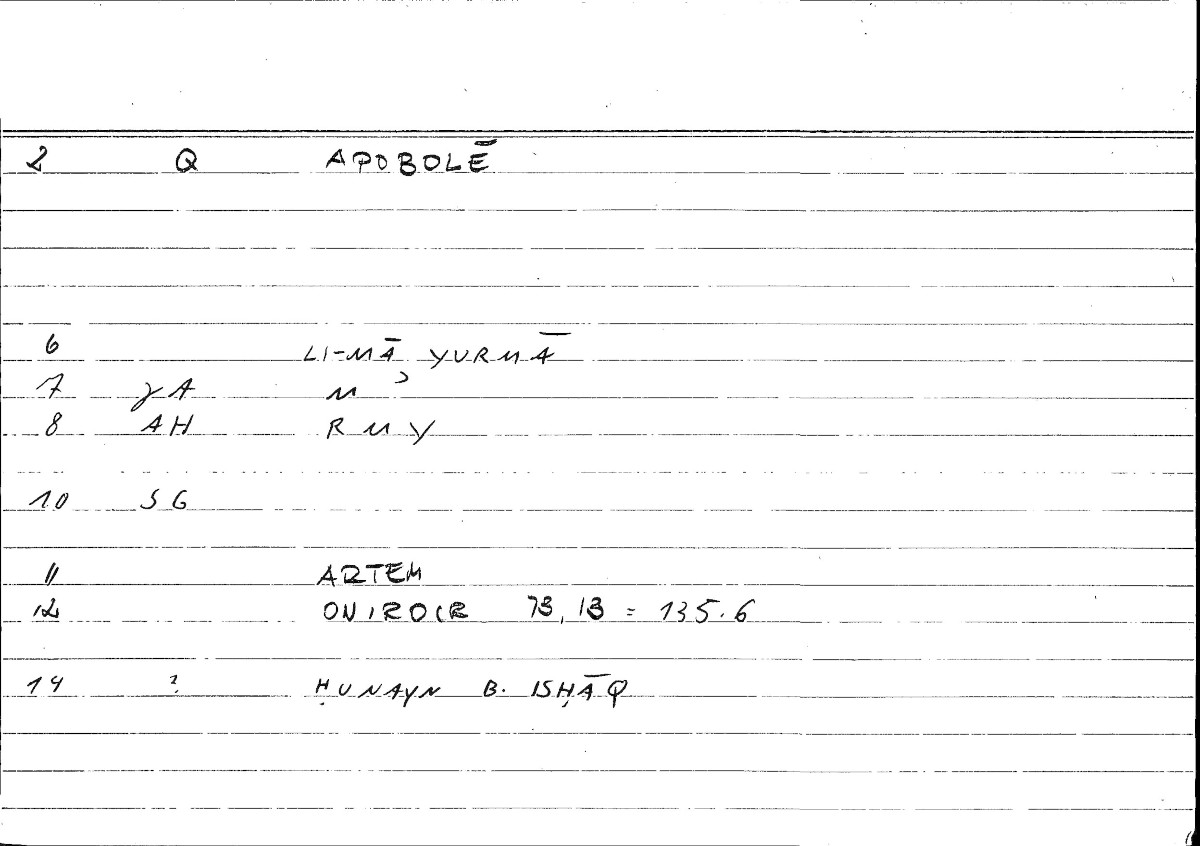 2 Q APOBOLĒ
6 LI-MĀ YURMĀ
7 γA M ʾ
8 AH R M Y
10 SG
11 ARTEM
12 ONIROCR 73,13 = 135.6
14 ? ḤUNAYN B. ISḤĀQ